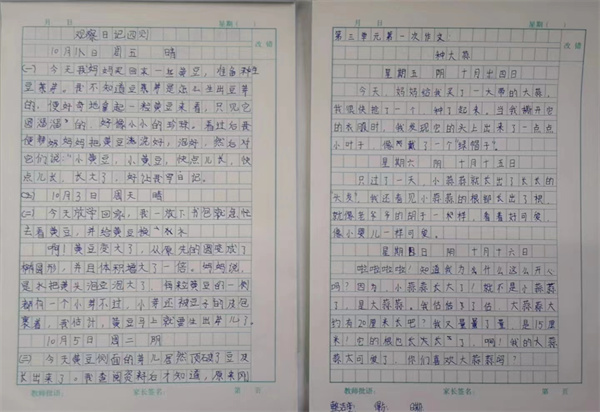 月 日 星期( )
改错
观察日记四则
10月1日 周五 晴
(一) 今天我妈妈买回来一些黄豆,准备种生
豆芽。我不知道豆芽是怎么生出豆芽
的,便好奇地拿起一粒黄豆来看,只见它
圆溜溜的,好像小小的珍珠。看过后我
便帮妈妈把黄豆洗好,泡好,然后对
它们说:“小黄豆,小黄豆,快点儿长,快
点儿长,长大了,好让我写日记。
(二) 10月3日 周天 晴
(二) 今天放学回家,我一放下书包就急忙
去看黄豆,并给黄豆换水
啊!黄豆变大了,从原先的圆变成了
椭圆形,并且体积增大了一倍。妈妈说,
是水把黄豆泡大了,每粒黄豆的一侧
都有一个小芽不过,小芽还被豆子的皮包
裹着,我估计,黄豆马上就要生出芽儿了。
10月5日 周二 阴
(三) 今天黄豆侧面的芽儿居然顶破了豆皮
长出来了。我查阅资料后才知道,原来刚
教师批语: 家长签名: 第 页
月 日 星期( )
改错
第三单元第一次作文
种大蒜
星期五 阴 十月十四日
今天,妈妈给我买了一大带的大蒜,
我很快挑了一个,种了起来。当我撕开它
的衣服时,我发现它的头上出来了一点点
小叶子,像戴了一个“绿帽子”。
星期六 阴 十月十五日
只过了一天,小蒜蒜就长出了长长的
头发,我还看见小蒜蒜的根部长出了根,
就像爷爷的胡子一样,看着好可爱,
像小婴儿一样可爱。
星期日 阴 十月十六日
啦啦啦啦!知道我为什么这么开心
吗?因为,小蒜蒜长大了!就不是小蒜蒜
了,是大蒜蒜。我估估了估,大蒜蒜大
约有20厘米长吧?我大量了量,是15厘
米!它的根也长太太了,啊!我的大蒜
蒜太可爱了,你们喜欢大蒜蒜吗?
教师批语: 家长签名: 第 页